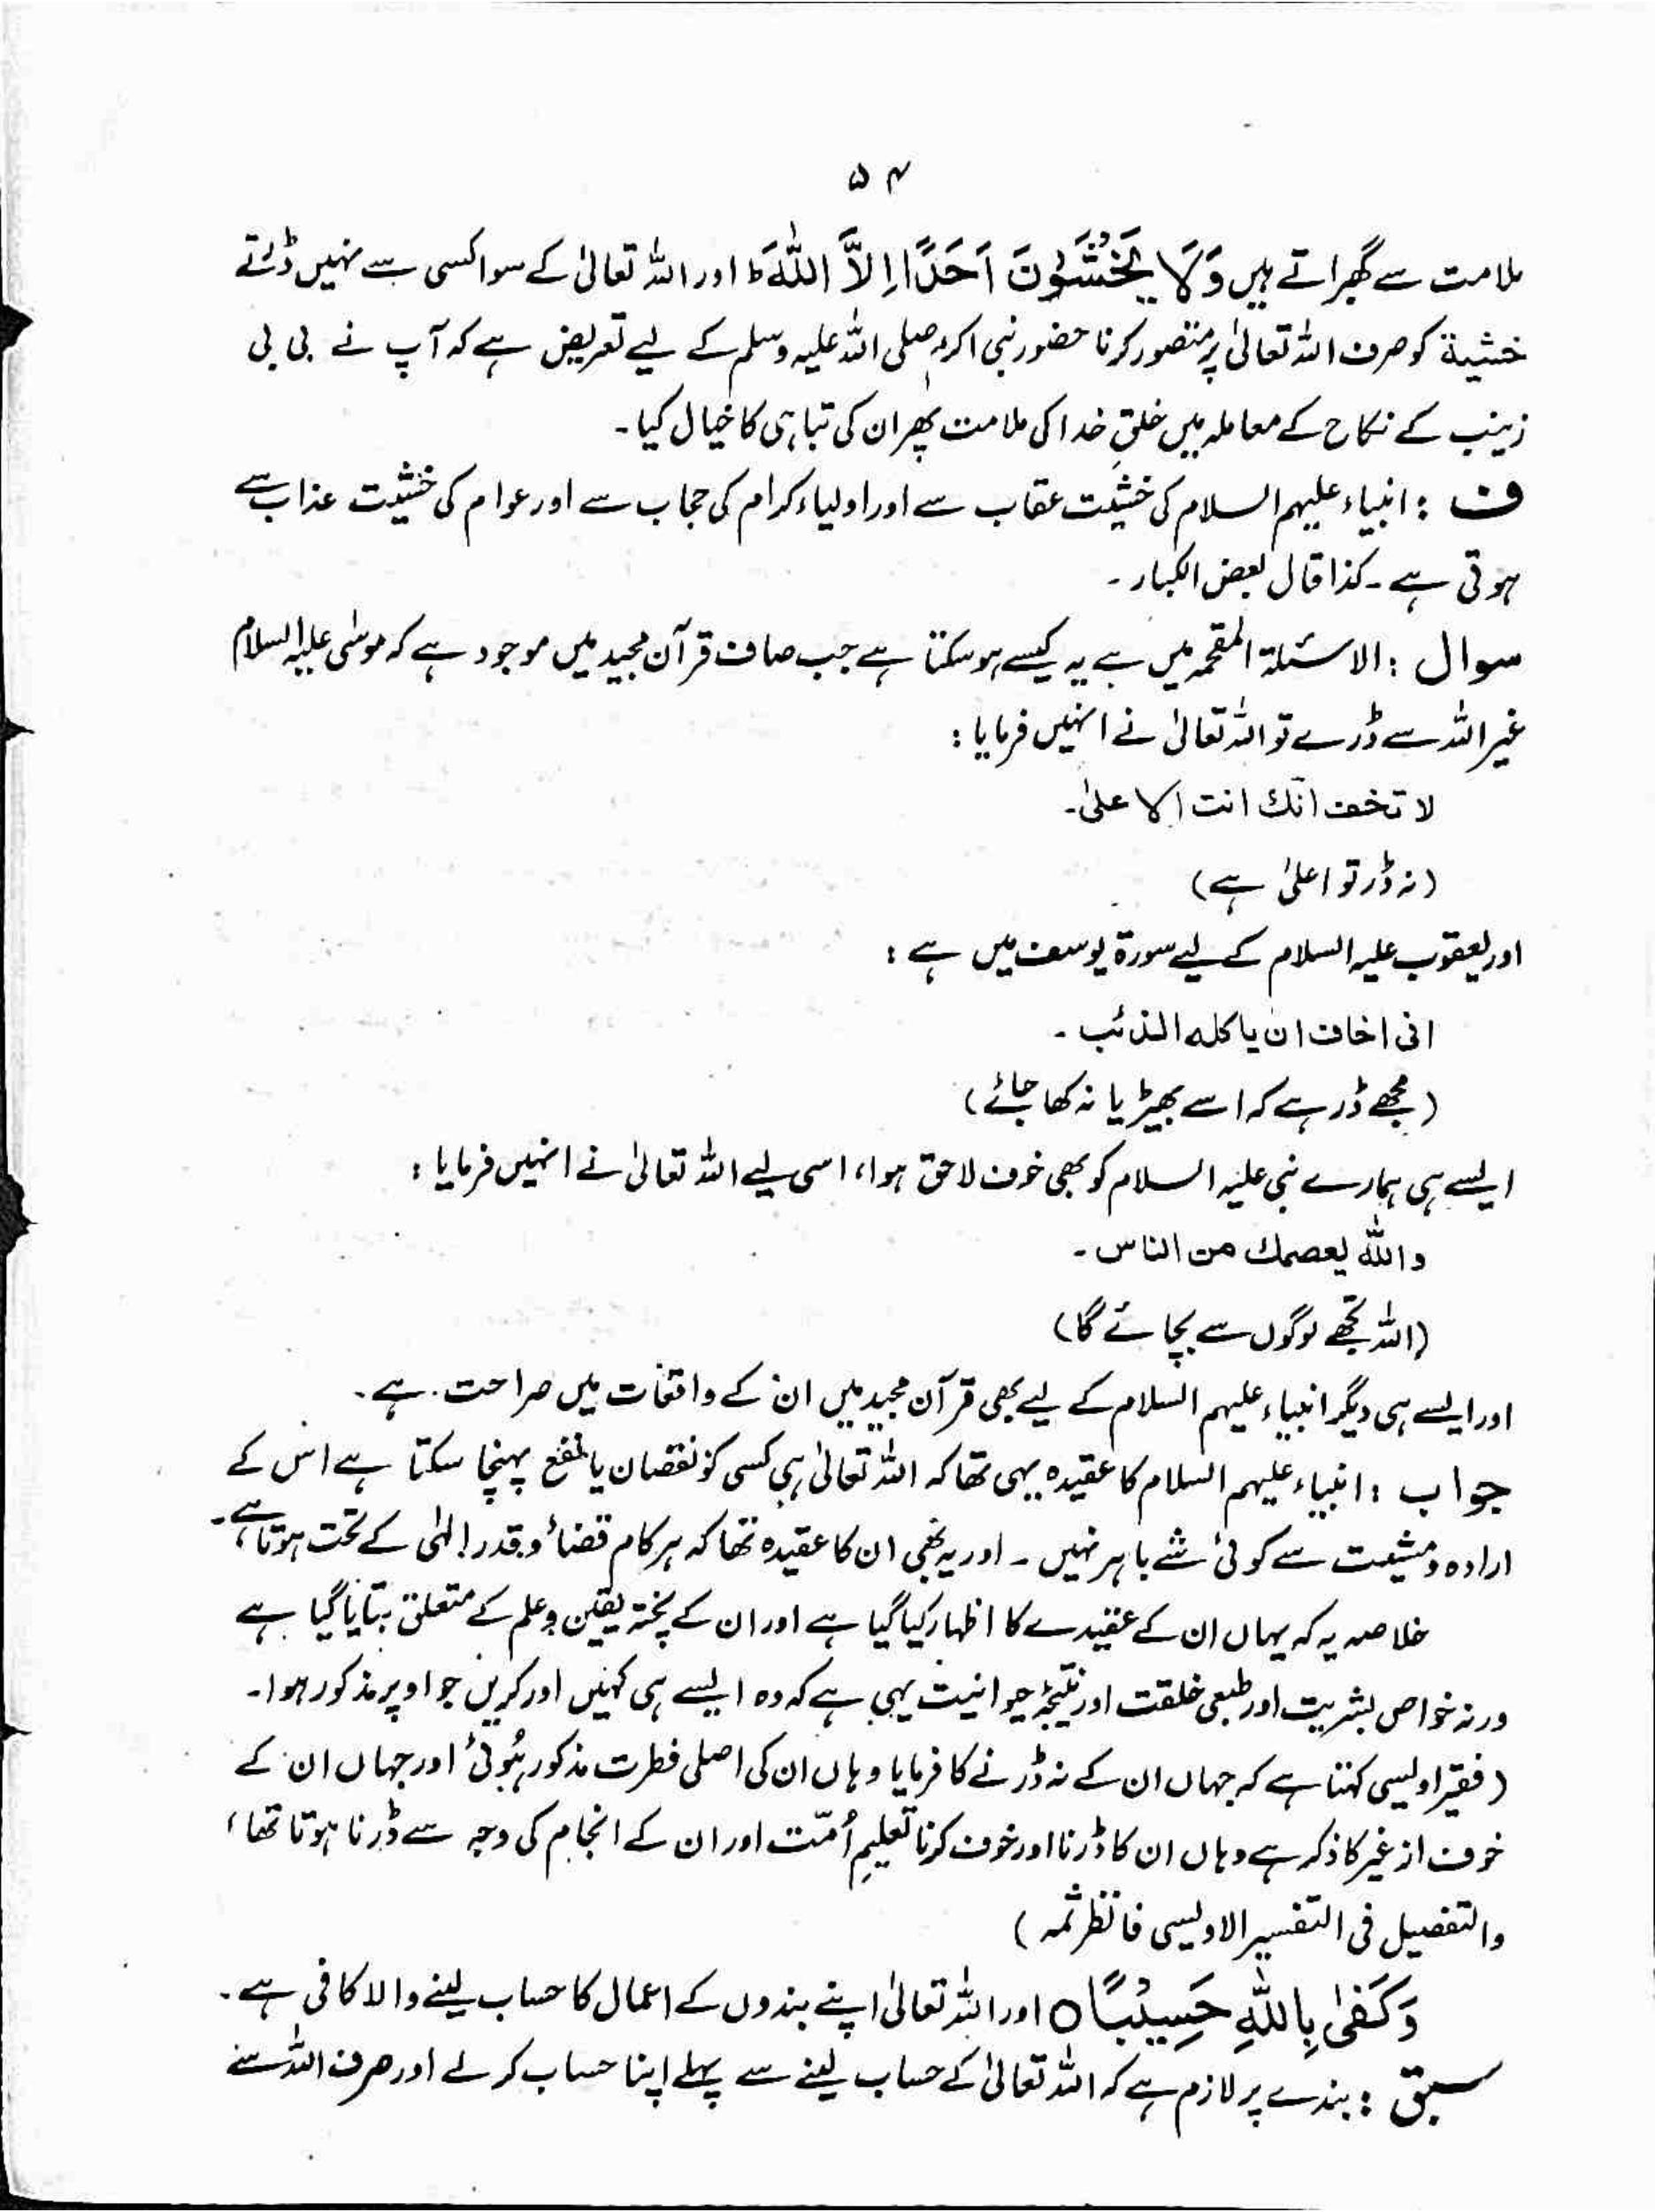 ۵۴
ملامت سے گھبراتے ہیں وَلَا يَخْشَوْنَ اَحَدًا اِلَّا اللّٰهَ ط اور اللہ تعالیٰ کے سوا کسی سے نہیں ڈرتے
خشیۃ کو صرف اللہ تعالیٰ پر متصور کرنا حضور نبی اکرم صلی اللہ علیہ وسلم کے لیے تعریض ہے کہ آپ نے بی بی
زینب کے نکاح کے معاملہ میں خلقِ خدا کی ملامت پھر ان کی تباہی کا خیال کیا۔
ف : انبیاء علیہم السلام کی خشیت عقاب سے اور اولیاء کرام کی حجاب سے اور عوام کی خشیت عذاب سے
ہوتی ہے ۔ کذا قال بعض الکبار ۔
سوال : الاسئلۃ المقحمہ میں ہے یہ کیسے ہو سکتا ہے جب صاف قرآن مجید میں موجود ہے کہ موسٰی علیہ السلام
غیر اللہ سے ڈرے تو اللہ تعالیٰ نے انہیں فرمایا :
لا تخف انّك انت الاعلیٰ۔
(نہ ڈر تو اعلیٰ ہے)
اور یعقوب علیہ السلام کے لیے سورۃ یوسف میں ہے :
انی اخاف ان یاکلہ الذئب ۔
(مجھے ڈر ہے کہ اسے بھیڑیا نہ کھا جائے)
ایسے ہی ہمارے نبی علیہ السلام کو بھی خوف لاحق ہوا، اسی لیے اللہ تعالیٰ نے انہیں فرمایا :
واللہ یعصمك من الناس ۔
(اللہ تجھے لوگوں سے بچائے گا)
اور ایسے ہی دیگر انبیاء علیہم السلام کے لیے بھی قرآن مجید میں ان کے واقعات میں صراحت ہے ۔
جواب : انبیاء علیہم السلام کا عقیدہ یہی تھا کہ اللہ تعالیٰ ہی کسی کو نقصان یا نفع پہنچا سکتا ہے اس کے
ارادہ و مشیت سے کوئی شے باہر نہیں ۔ اور یہ بھی ان کا عقیدہ تھا کہ ہر کام قضاؑ و قدر الٰہی کے تحت ہوتا ہے۔
خلاصہ یہ کہ یہاں ان کے عقیدے کا اظہار کیا گیا ہے اور ان کے پختہ یقین و علم کے متعلق بتایا گیا ہے
ورنہ خواص بشریت اور طبعی خلقت اور نتیجۂ حیوانیت یہی ہے کہ وہ ایسے ہی کہیں اور کریں جو اوپر مذکور ہوا۔
(فقیر اویسی کہتا ہے کہ جہاں ان کے نہ ڈرنے کا فرمایا وہاں ان کی اصلی فطرت مذکور ہُوئی اور جہاں ان کے
خوف از غیر کا ذکر ہے وہاں ان کا ڈرنا اور خوف کرنا تعلیمِ اُمّت اور ان کے انجام کی وجہ سے ڈرنا ہوتا تھا ،
والتفصیل فی التفسیر الاویسی فانظر ثمہ )
وَكَفٰى بِاللّٰهِ حَسِيْبًا ○ اور اللہ تعالیٰ اپنے بندوں کے اعمال کا حساب لینے والا کافی ہے ۔
سبق : بندے پر لازم ہے کہ اللہ تعالیٰ کے حساب لینے سے پہلے اپنا حساب کر لے اور صرف اللہ سے